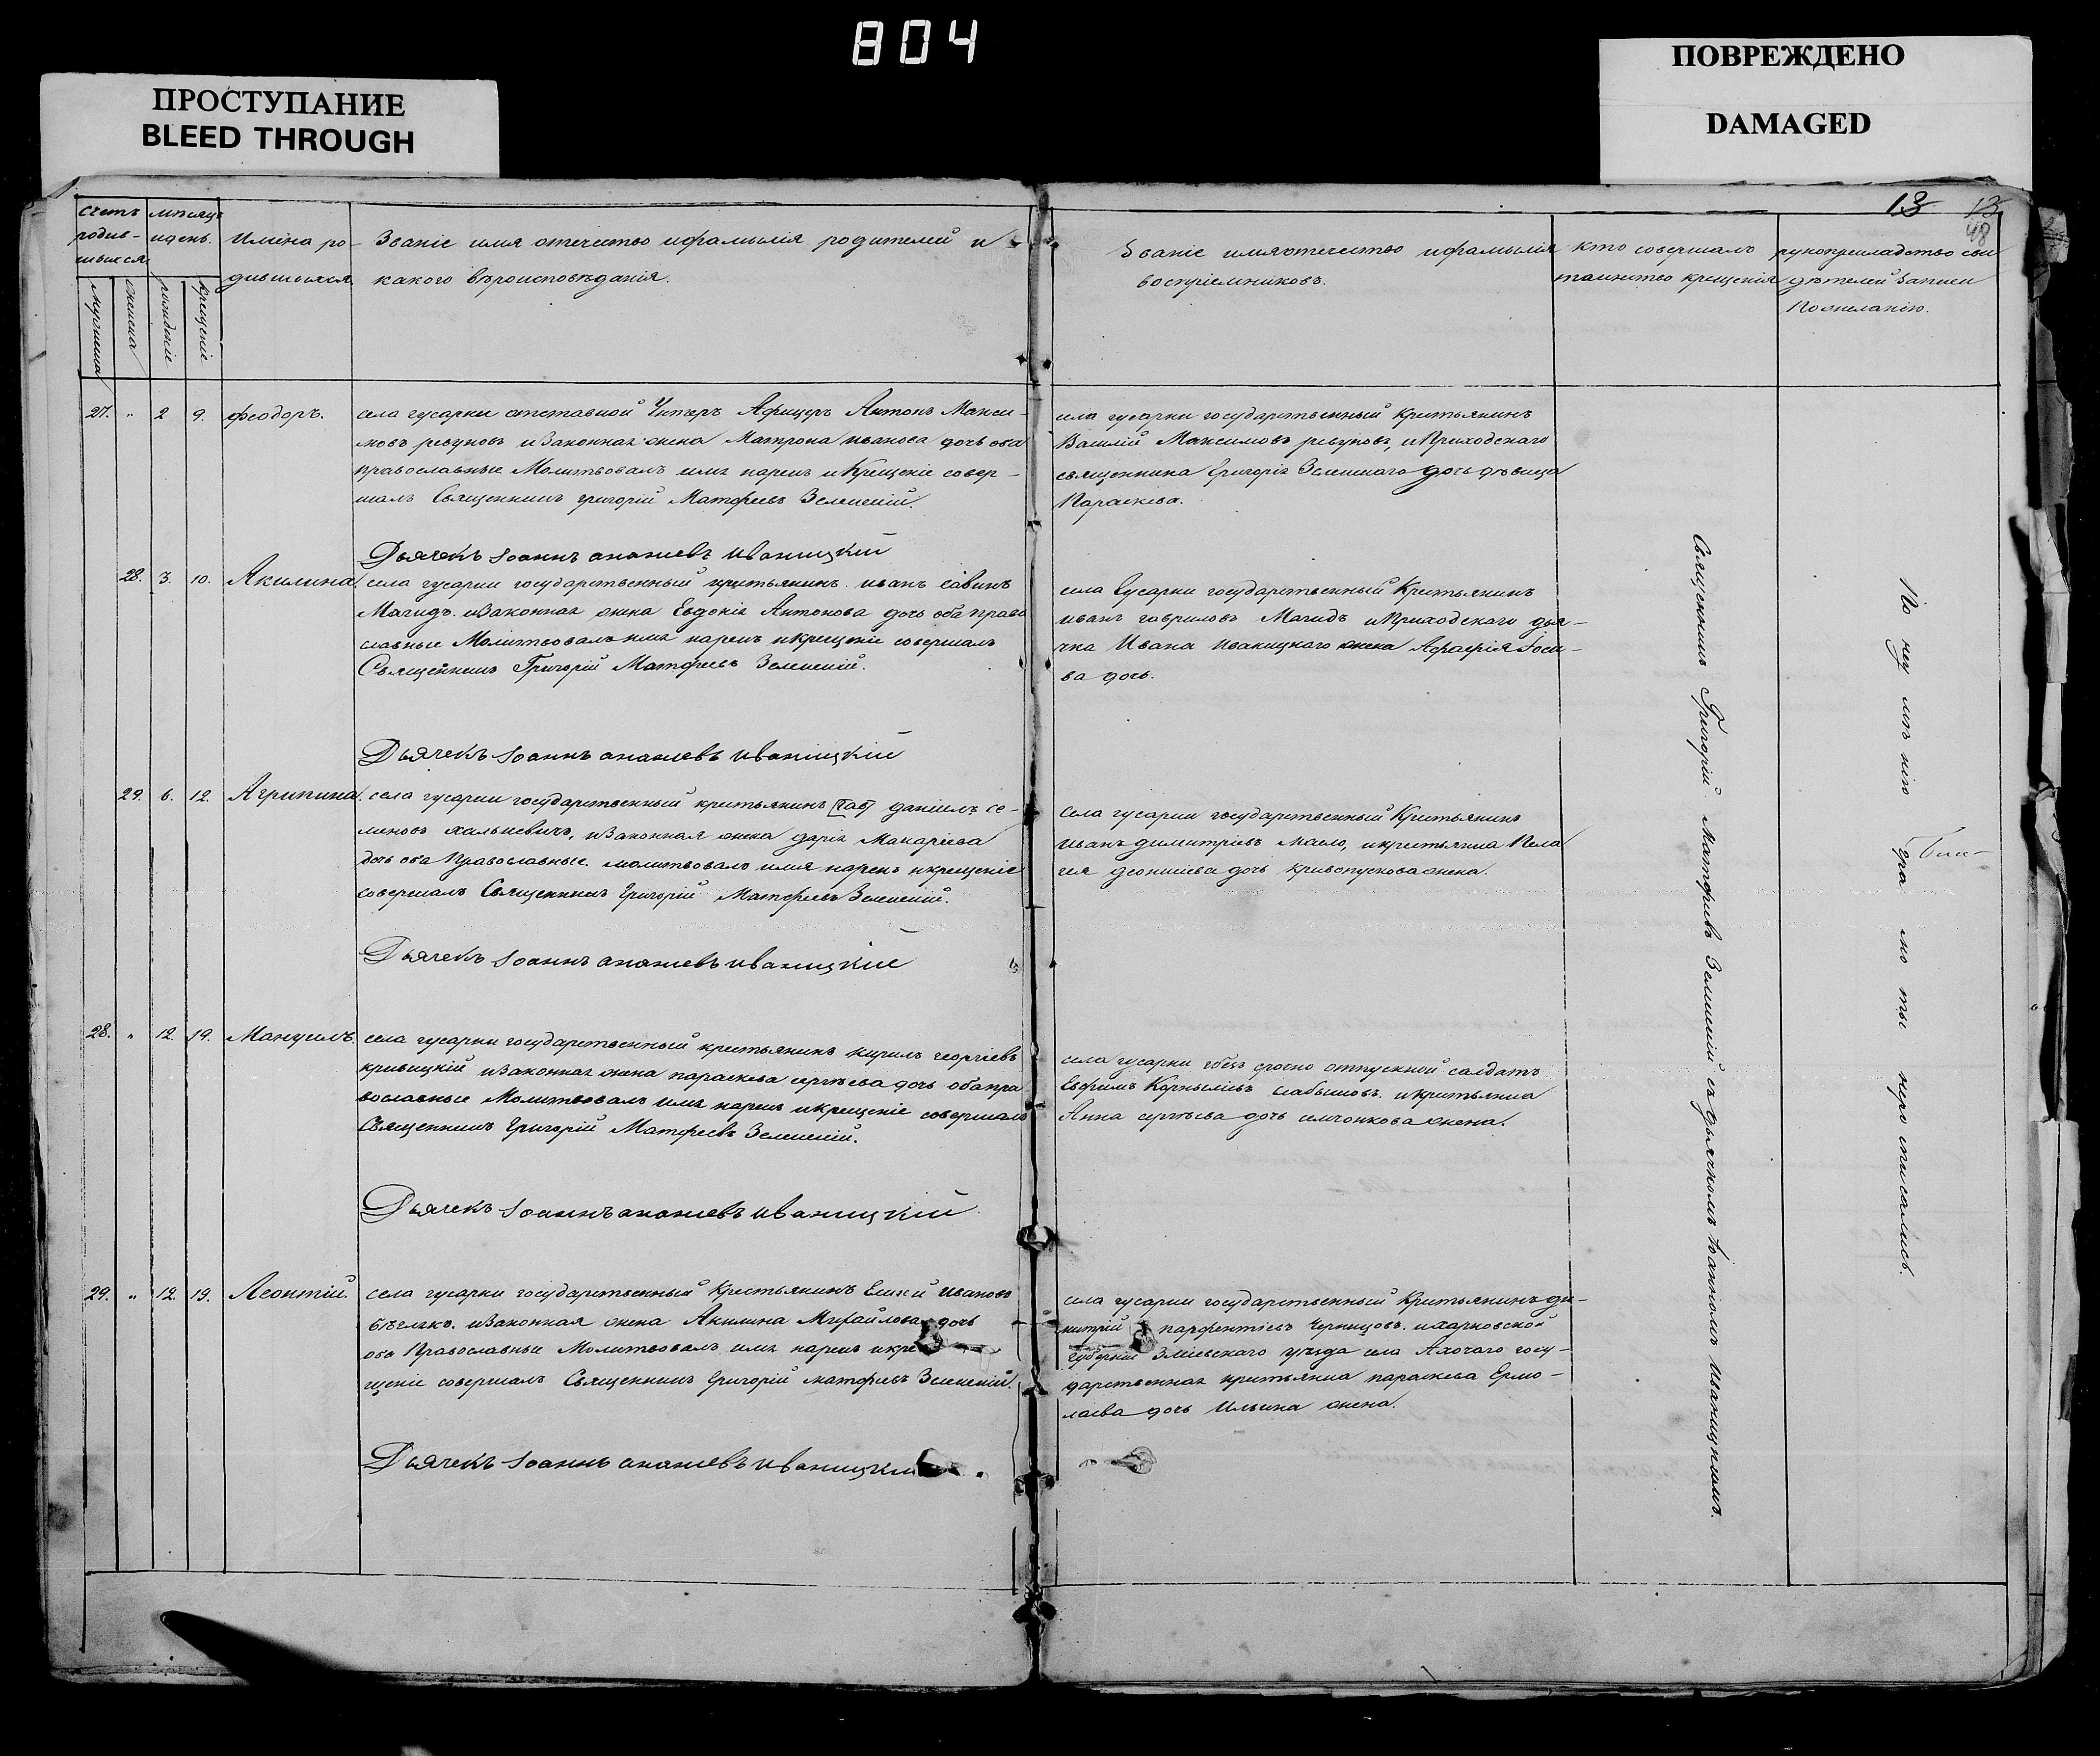 804
ПРОСТУПАНИЕ
BLEED THROUGH
ПОВРЕЖДЕНО
DAMAGED
13 13
48
счетъ родив- шихся
мужеска
женска
мѣсяцъ и день.
рожденіе
крещеніе
Имена ро-
дившихся.
Званіе имя отечество и фамилія родителей и
какого вѣроисповѣданія.
Званіе имя отечество и фамилія
воспріемниковъ.
кто совершалъ
таинство крещенія
рукоприкладство сви
дѣтелей записи
по желанію.
27. " 2 9. Феодоръ.
села гусарки отставной Унтеръ Афицеръ Антонъ Макси-
мовъ ревуновъ и Законная жена Матрона иванова дочь оба
православные Молитвовалъ имя нарекъ и Крещеніе совер-
шалъ Священникъ григорій Матфеевъ Зеленскій.
Дьячекъ Іоаннъ ананіевъ иваницкій
села гусарки государственный Крестьянинъ
Василій Максимовъ ревуновъ, и Приходскаго
священника Григорія Зеленскаго дочь дѣвица
Параскева.
28. 3. 10. Акилина.
села гусарки государственный крестьянинъ иванъ савинъ
Магидъ. и Законная жена Евдокія Антонова дочь оба право
славные Молитвовалъ имя нарекъ и крещеніе совершалъ
Священникъ Григорій Матфеевъ Зеленскій.
Дьячекъ Іоаннъ ананіевъ иваницкій
села Гусарки государственный Крестьянинъ
иванъ гавриловъ Магидъ и Приходскаго дья-
чка Ивана иваницкаго жена
ва дочь.
29. 6. 12. Агрипина.
села гусарки государственный крестьянинъ даніилъ се-
меновъ и Законная жена дарія Макаріева
дочь оба Православные. молитвовалъ имя нарекъ и крещеніе
совершалъ Священникъ Григорій Матфеевъ Зеленскій.
Дьячекъ Іоаннъ ананіевъ иваницкій
села гусарки государственный Крестьянинъ
иванъ димитріевъ и крестьянка Пела
гея дочь жена.
28. " 12. 19. Мануилъ.
села гусарки государственный крестьянинъ кирилъ георгіевъ
кривицкій и Законная жена параскева сергѣева дочь оба пра
вославные Молитвовалъ имя нарекъ и крещеніе совершалъ
Священникъ Григорій Матфеевъ Зеленскій.
Дьячекъ Іоаннъ ананіевъ иваницкій
села гусарки срочно отпускной салдатъ
Евфимъ Корниліевъ и крестьянка
Анна сергѣева дочь жена.
29. " 12. 19. Леонтій.
села гусарки государственный Крестьянинъ ивановъ
и Законная жена Акилина Михайлова дочь
оба Православные Молитвовалъ имя нарекъ и кре
щеніе совершалъ Священникъ Григорій матфеевъ Зеленскій.
Дьячекъ Іоаннъ ананіевъ иваницкій
села гусарки государственный Крестьянинъ ди-
митрій парфентіевъ Чернцовъ. и харковской
губерніи Зміевскаго уѣзда села госу-
дарственная крестьянка параскева Ермо-
лаева дочь Ильина жена.
Священникъ Григорій Матфеевъ Зеленскій съ дьячкомъ Іоанномъ Иваницкимъ.
По не мѣнію но ты неро списались.